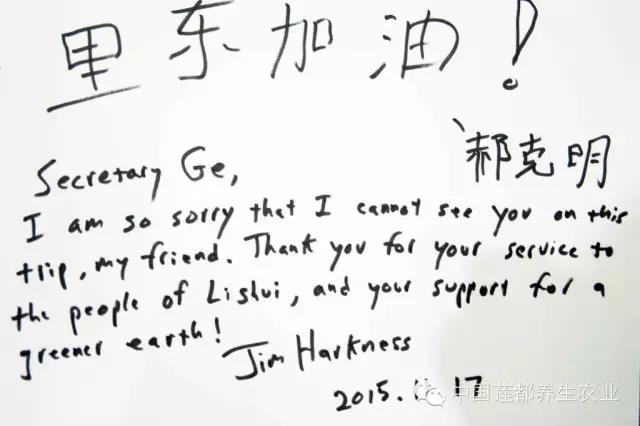 里东加油!
郝克明
Secretary Ge,
I am so sorry that I cannot see you on this
trip, my friend. Thank you for your service to
the people of Lishui, and your support for a
greener earth!
Jim Harkness
2015.11.17
中国莲都养生农业